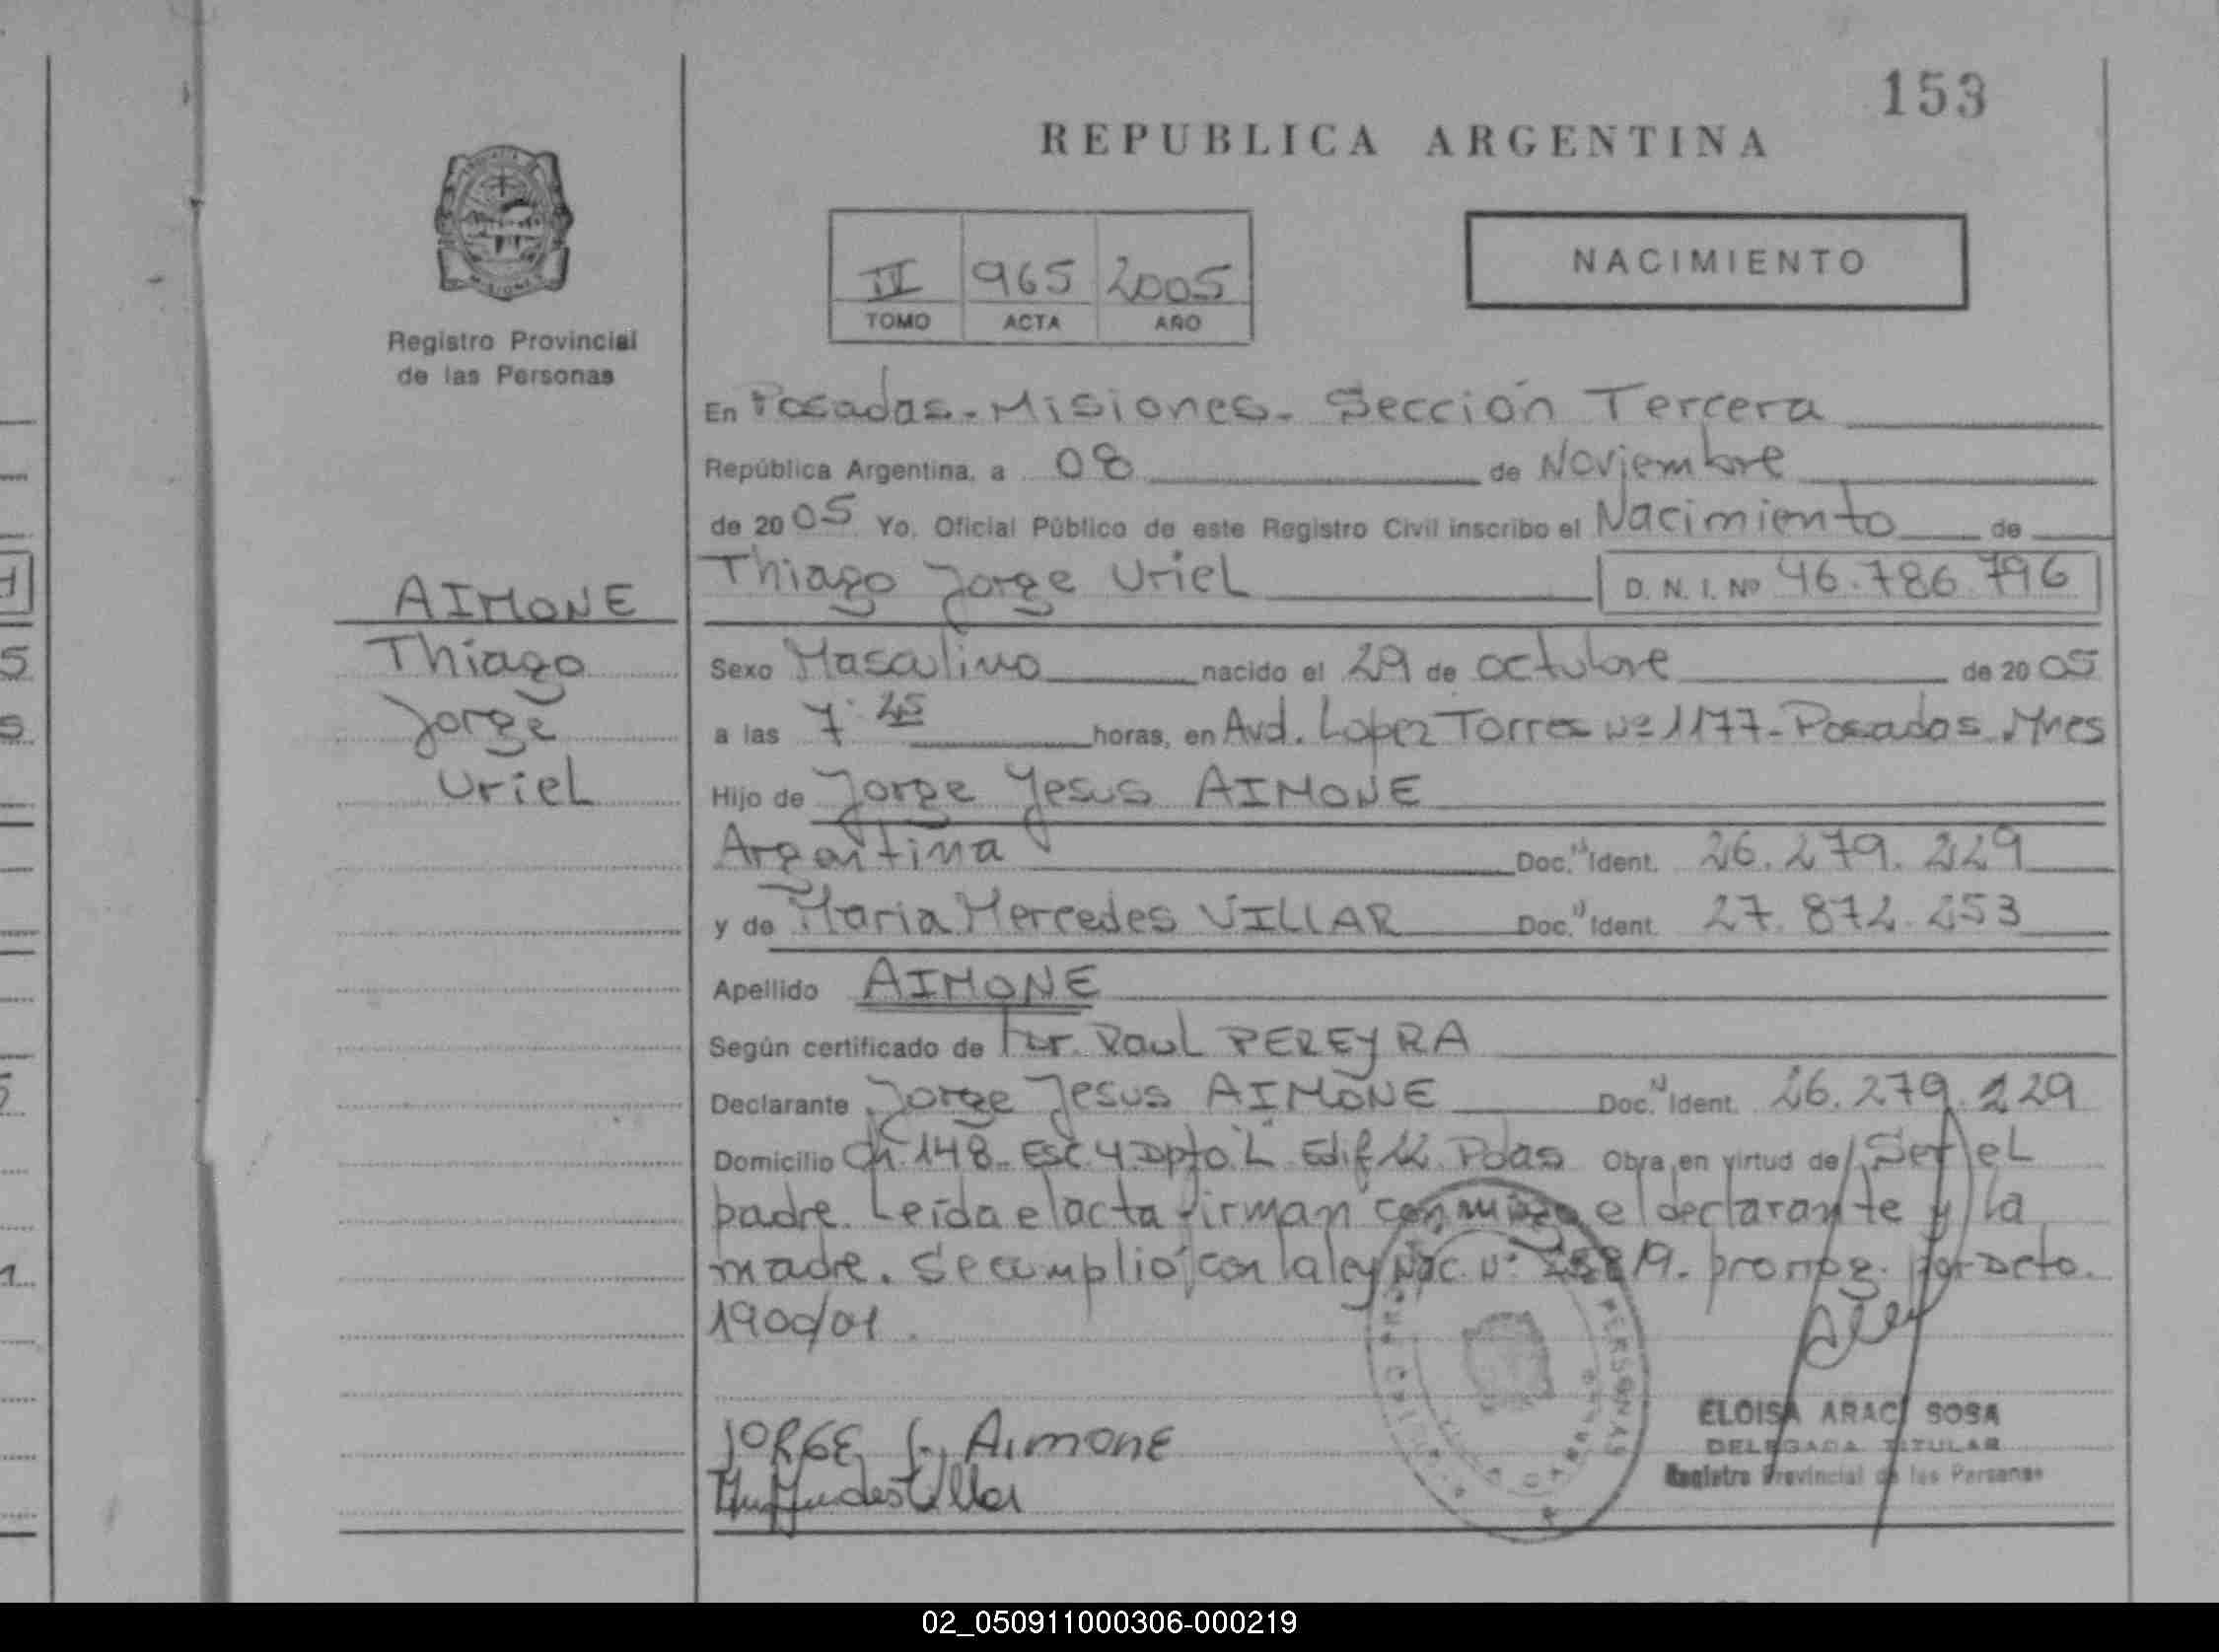 153
REPUBLICA ARGENTINA
Registro Provincial
de las Personas
II 965 2005
TOMO ACTA AÑO
NACIMIENTO
En Posadas - Misiones - Sección Tercera
República Argentina, a 08 de Noviembre
de 2005 Yo, Oficial Público de este Registro Civil inscribo el Nacimiento de
Thiago Jorge Uriel D. N. I. Nº 46.786.796
AIMONE
Thiago
Jorge
Uriel
Sexo Masculino nacido el 29 de octubre de 2005
a las 7:45 horas, en Avd. Lopez Torres Nº 1177 - Posadas Mnes
Hijo de Jorge Jesus AIMONE
Argentina Doc. N Ident. 26.279.229
y de Maria Mercedes VILLAR Doc. N Ident. 27.872.253
Apellido AIMONE
Según certificado de Raul PEREYRA
Declarante Jorge Jesus AIMONE Doc. N Ident. 26.279.229
Domicilio Ch. 148 Esc. 4 Dpto "L" Edif. Pdas Obra en virtud de Ser el
padre. Leída el acta firman conmigo el declarante y la
madre. Se cumplió con la ley Nac. Nº prorrog. por Dcto.
1900/01.
JORGE J. AIMONE
ELOISA ARACI SOSA
DELEGADA TITULAR
Registro Provincial de las Personas
PERSONAS
02_050911000306-000219